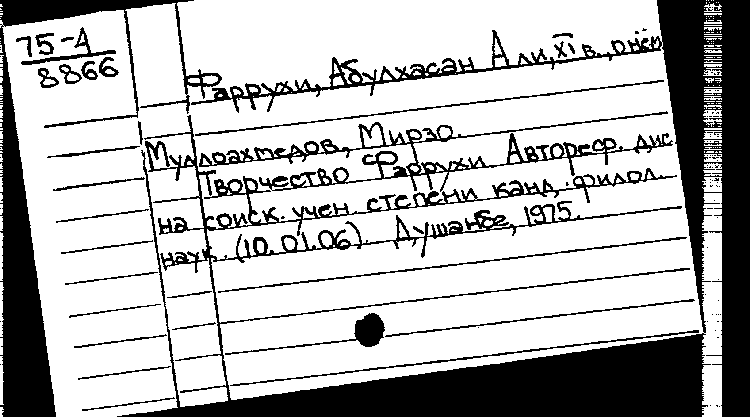 75-4
8866
Фаррухи, Абулхасан Али, XI в., о нём
Муллоахмедов, Мирзо.
Творчество Фаррухи Автореф. дис
на соиск. учен. степени канд. филол.
наук. (10.01.06). Душанбе, 1975.